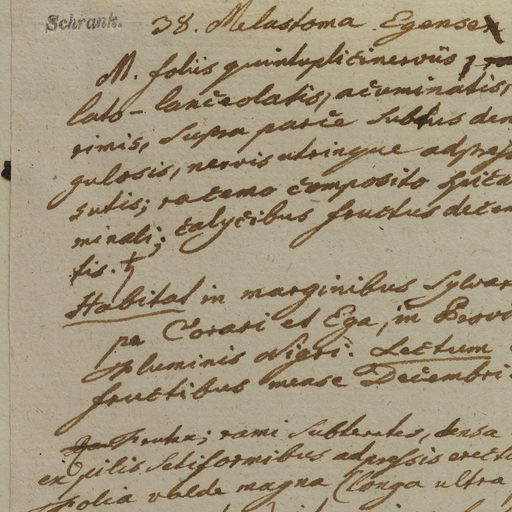 Schrank.
38. Melastoma Egense
M. foliis quintuplicinerviis,
lato-lanceolatis, acuminatis,
rimis, supra parce subtus den
gulosis, nervis utrinque adpress
sutis; racemo composito spica
minali; calycibus fructus decem
tis. ♄
Habitat in marginibus sylvar
pe Coari et Ega, in Provi
fluminis Nigri. Lectum
fructibus mense Decembri.
Frutex; rami subteretes, densa
ex pilis setiformibus adpressis erect
Folia valde magna (longa ultra